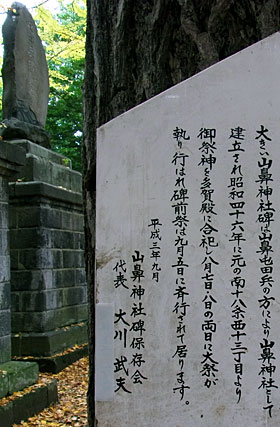 大きい山鼻神社碑は山鼻屯田兵の方により山鼻神社として
建立され昭和四十六年に元の南十八条西十三丁目より
御祭神を多賀殿に合祀し八月七日八日の両日に大祭が
執り行はれ碑前祭は九月五日に斉行されて居ります。
平成三年九月
山鼻神社碑保存会
代表 大川武夫